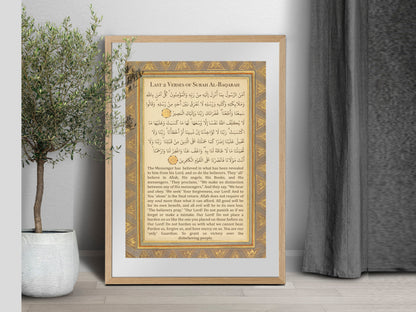 Last 2 Verses of Surah Al-Baqarah
آمَنَ الرَّسُولُ بِمَا أُنْزِلَ إِلَيْهِ مِنْ رَبِّهِ وَالْمُؤْمِنُونَ ۚ كُلٌّ آمَنَ بِاللَّهِ
وَمَلَائِكَتِهِ وَكُتُبِهِ وَرُسُلِهِ لَا نُفَرِّقُ بَيْنَ أَحَدٍ مِنْ رُسُلِهِ ۚ وَقَالُوا
سَمِعْنَا وَأَطَعْنَا ۖ غُفْرَانَكَ رَبَّنَا وَإِلَيْكَ الْمَصِيرُ
لَا يُكَلِّفُ اللَّهُ نَفْسًا إِلَّا وُسْعَهَا ۚ لَهَا مَا كَسَبَتْ وَعَلَيْهَا مَا
اكْتَسَبَتْ ۗ رَبَّنَا لَا تُؤَاخِذْنَا إِنْ نَسِينَا أَوْ أَخْطَأْنَا ۚ رَبَّنَا وَلَا
تَحْمِلْ عَلَيْنَا إِصْرًا كَمَا حَمَلْتَهُ عَلَى الَّذِينَ مِنْ قَبْلِنَا ۚ رَبَّنَا وَلَا
تُحَمِّلْنَا مَا لَا طَاقَةَ لَنَا بِهِ ۖ وَاعْفُ عَنَّا وَاغْفِرْ لَنَا وَارْحَمْنَا ۚ
أَنْتَ مَوْلَانَا فَانْصُرْنَا عَلَى الْقَوْمِ الْكَافِرِينَ
The Messenger has believed in what has been revealed
to him from his Lord, and so do the believers. They ˹all˺
believe in Allah, His angels, His Books, and His
messengers. ˹They proclaim,˺ “We make no distinction
between any of His messengers.” And they say, “We hear
and obey. ˹We seek˺ Your forgiveness, our Lord! And to
You ˹alone˺ is the final return. Allah does not require of
any soul more than what it can afford. All good will be
for its own benefit, and all evil will be to its own loss.
˹The believers pray,˺ “Our Lord! Do not punish us if we
forget or make a mistake. Our Lord! Do not place a
burden on us like the one you placed on those before us.
Our Lord! Do not burden us with what we cannot bear.
Pardon us, forgive us, and have mercy on us. You are our
˹only˺ Guardian. So grant us victory over the
disbelieving people.